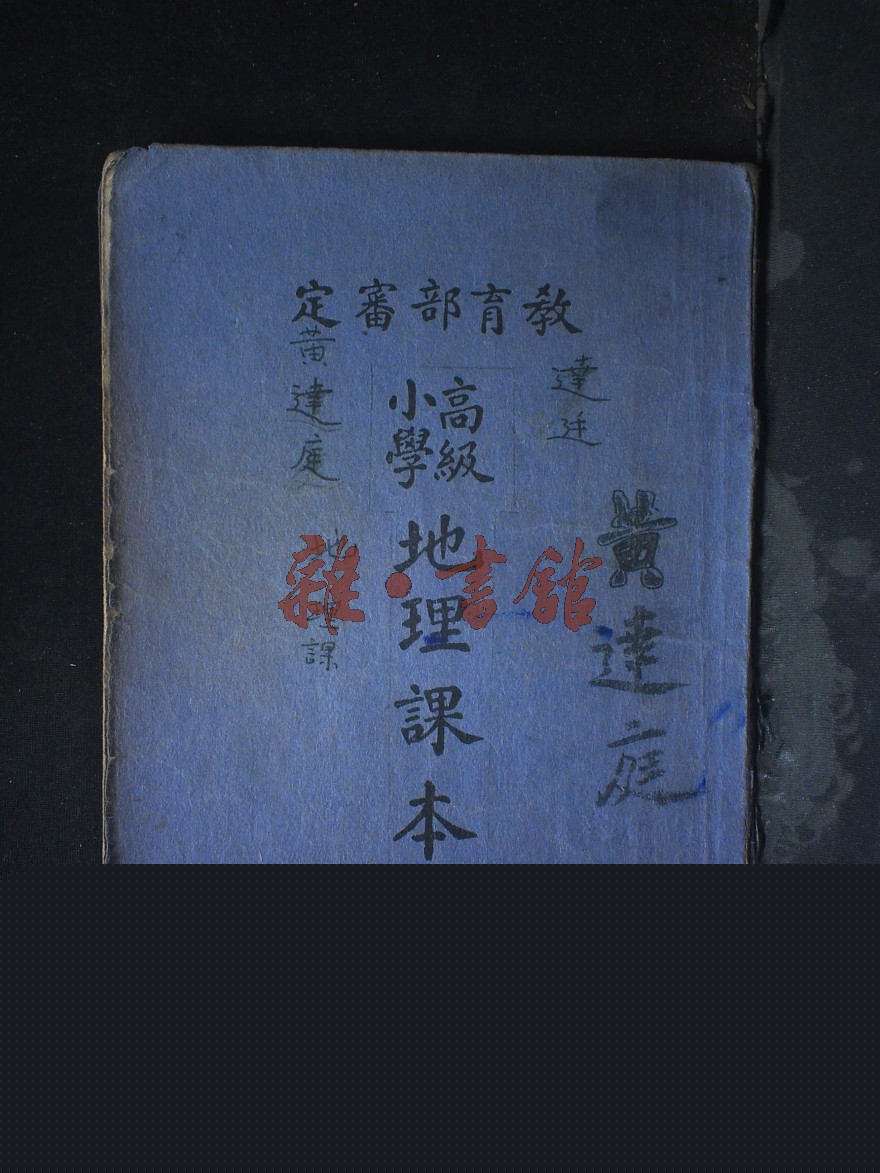 教育部審定
高級
小學
地理課本
達廷
黃達庭
黃達庭
地理課
雜·書館